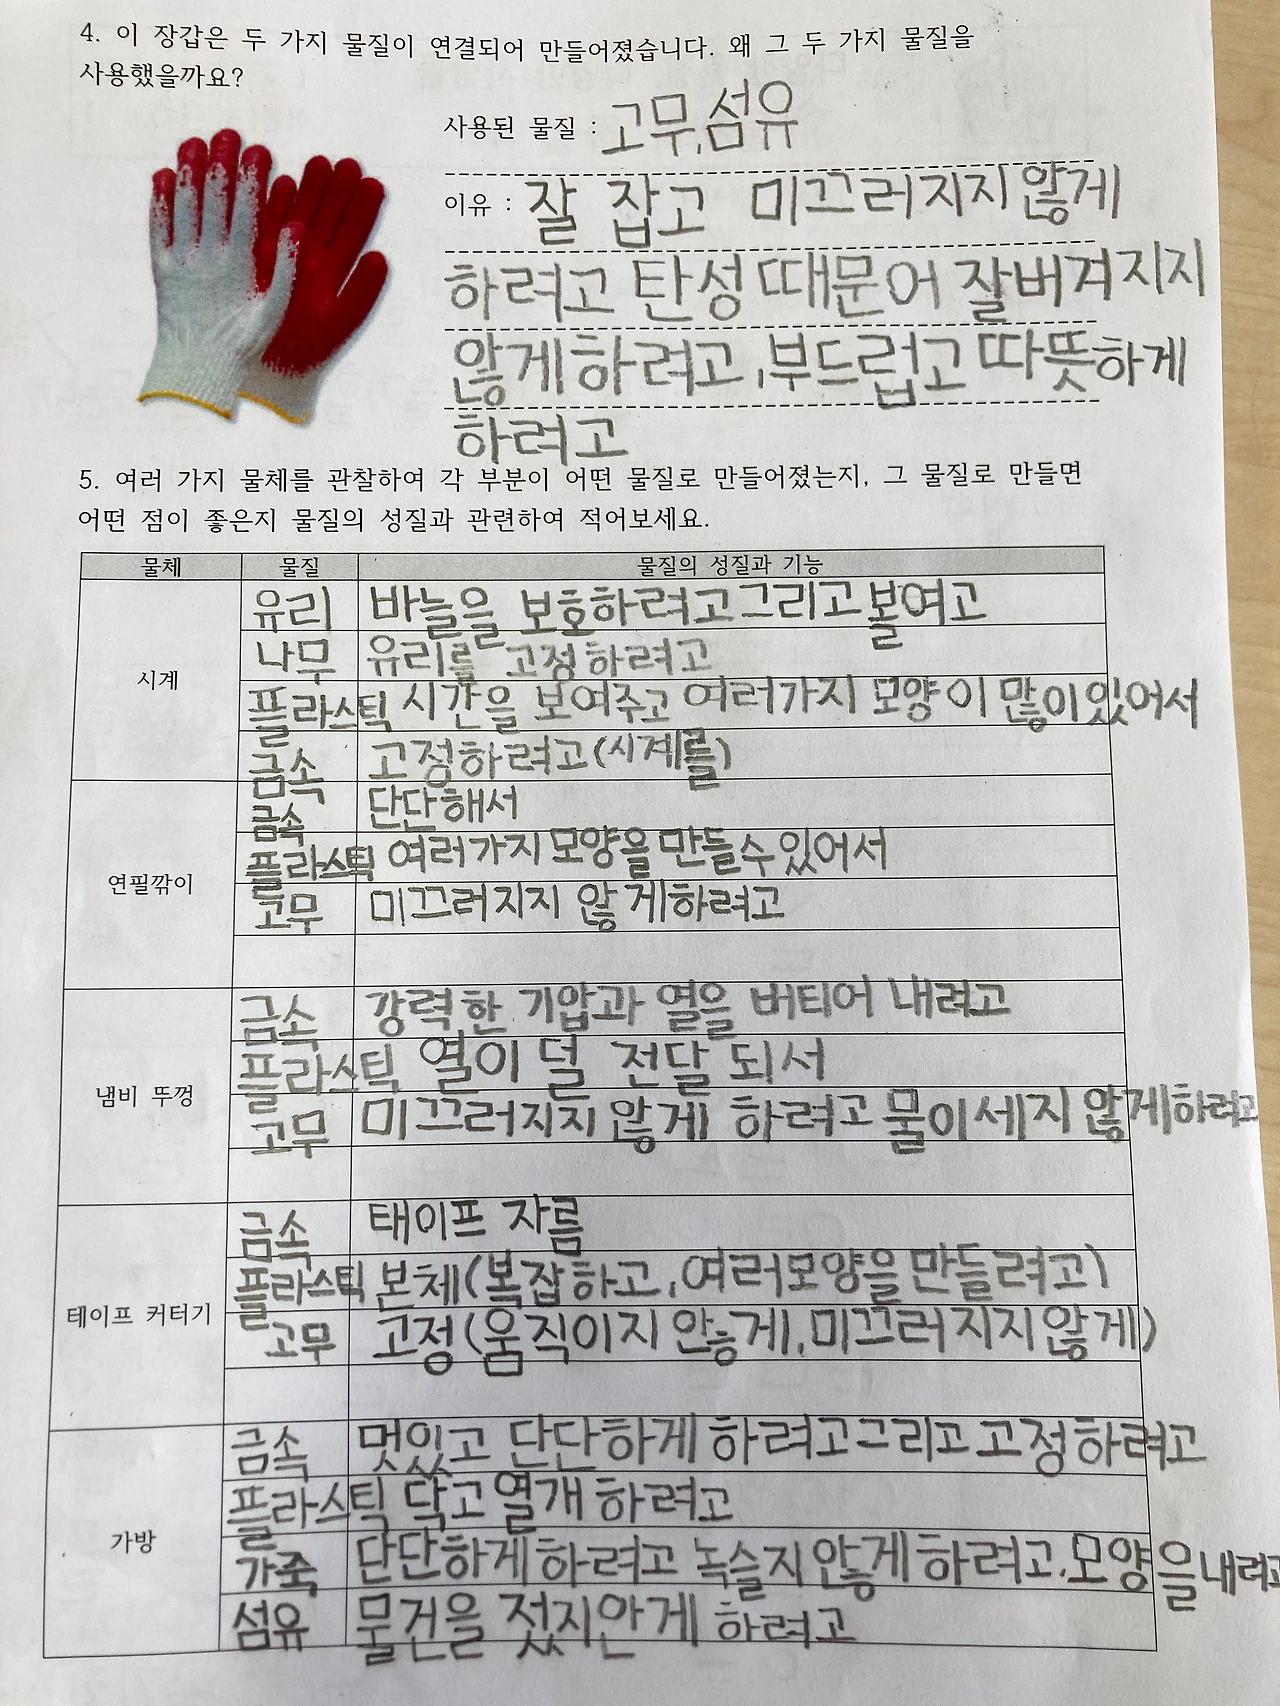 4. 이 장갑은 두 가지 물질이 연결되어 만들어졌습니다. 왜 그 두 가지 물질을
사용했을까요?
사용된 물질 : 고무,섬유
이유 : 잘 잡고 미끄러지지 않게
하려고 탄성 때문어 잘버겨지지
않게하려고,부드럽고 따뜻하게
하려고
5. 여러 가지 물체를 관찰하여 각 부분이 어떤 물질로 만들어졌는지, 그 물질로 만들면
어떤 점이 좋은지 물질의 성질과 관련하여 적어보세요.
물체 물질 물질의 성질과 기능
유리 바늘을 보호하려고그리고볼여고
나무 유리를 고정하려고
시계
플라스틱 시간을 보여주고 여러가지 모양이 많이있어서
금속 고정하려고(시계를)
금속 단단해서
플라스틱 여러가지모양을만들수있어서
연필깎이
고무 미끄러지지 않게하려고
금속 강력한 기압과 열을 버티어 내려고
플라스틱 열이 덜 전달 되서
냄비 뚜껑
고무 미끄러지지 않게 하려고 물이세지않게하려고
금속 태이프 자름
플라스틱 본체(복잡하고,여러모양을만들려고)
테이프 커터기
고무 고정(움직이지 안능게,미끄러지지않게)
금속 멋있고 단단하게하려고그리고고정하려고
플라스틱 닥고열개 하려고
가방
가죽 단단하게하려고 녹슬지않게하려고,모양을내려고
섬유 물건을 젔지안게 하려고